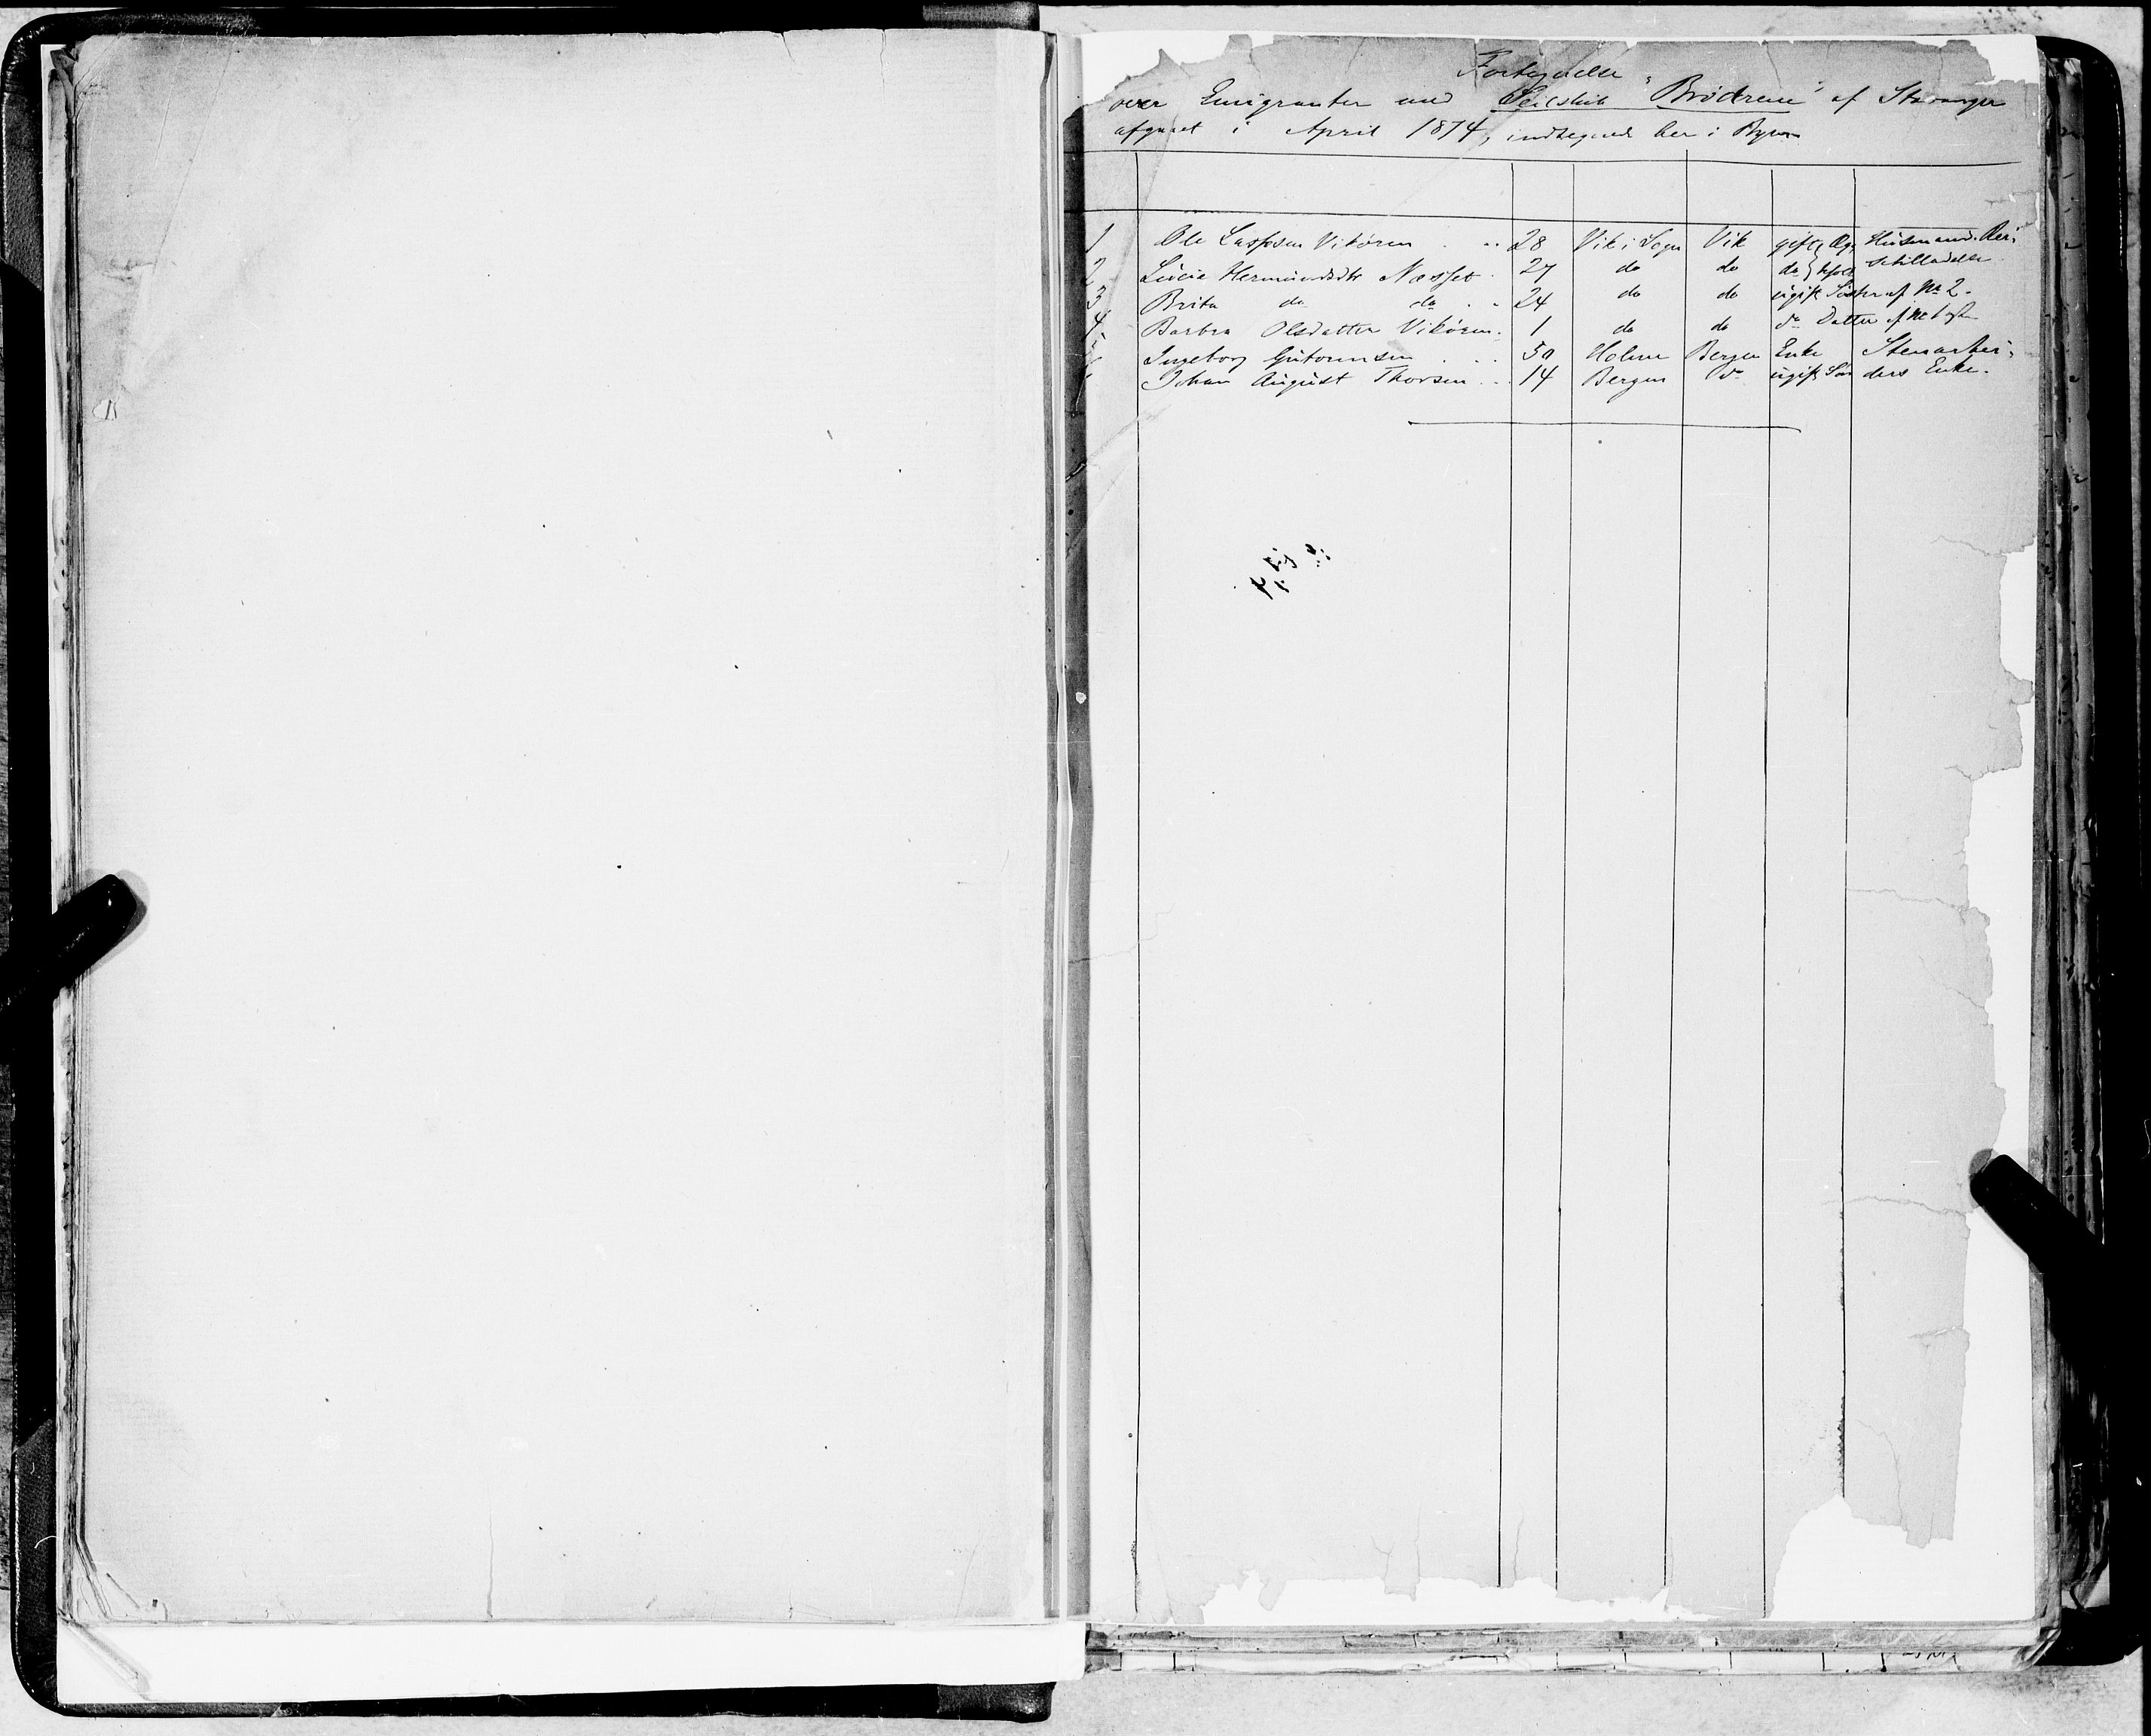 Fortegnelse
over Emigranter med Seilskib "Brödrene" af Stavanger
afgaaet i April 1874, indtegnede her i Byen
1 Ole Lassesen Vikören . .. 28 Vik i Sogn Vik gift Husmand.
2 Lucie Hermundsdtr Næsset . 27 do do do
3 Brita do do . . 24 do do ugift Söster af No 2.
4 Barbra Olsdatter Vikören . 1 do do do Datter af
5 Ingeborg . .. 50 Bergen Enke Stenarbei-
6 Johan August Thorsen .. 14 Bergen do ugift Sön ders Enke.